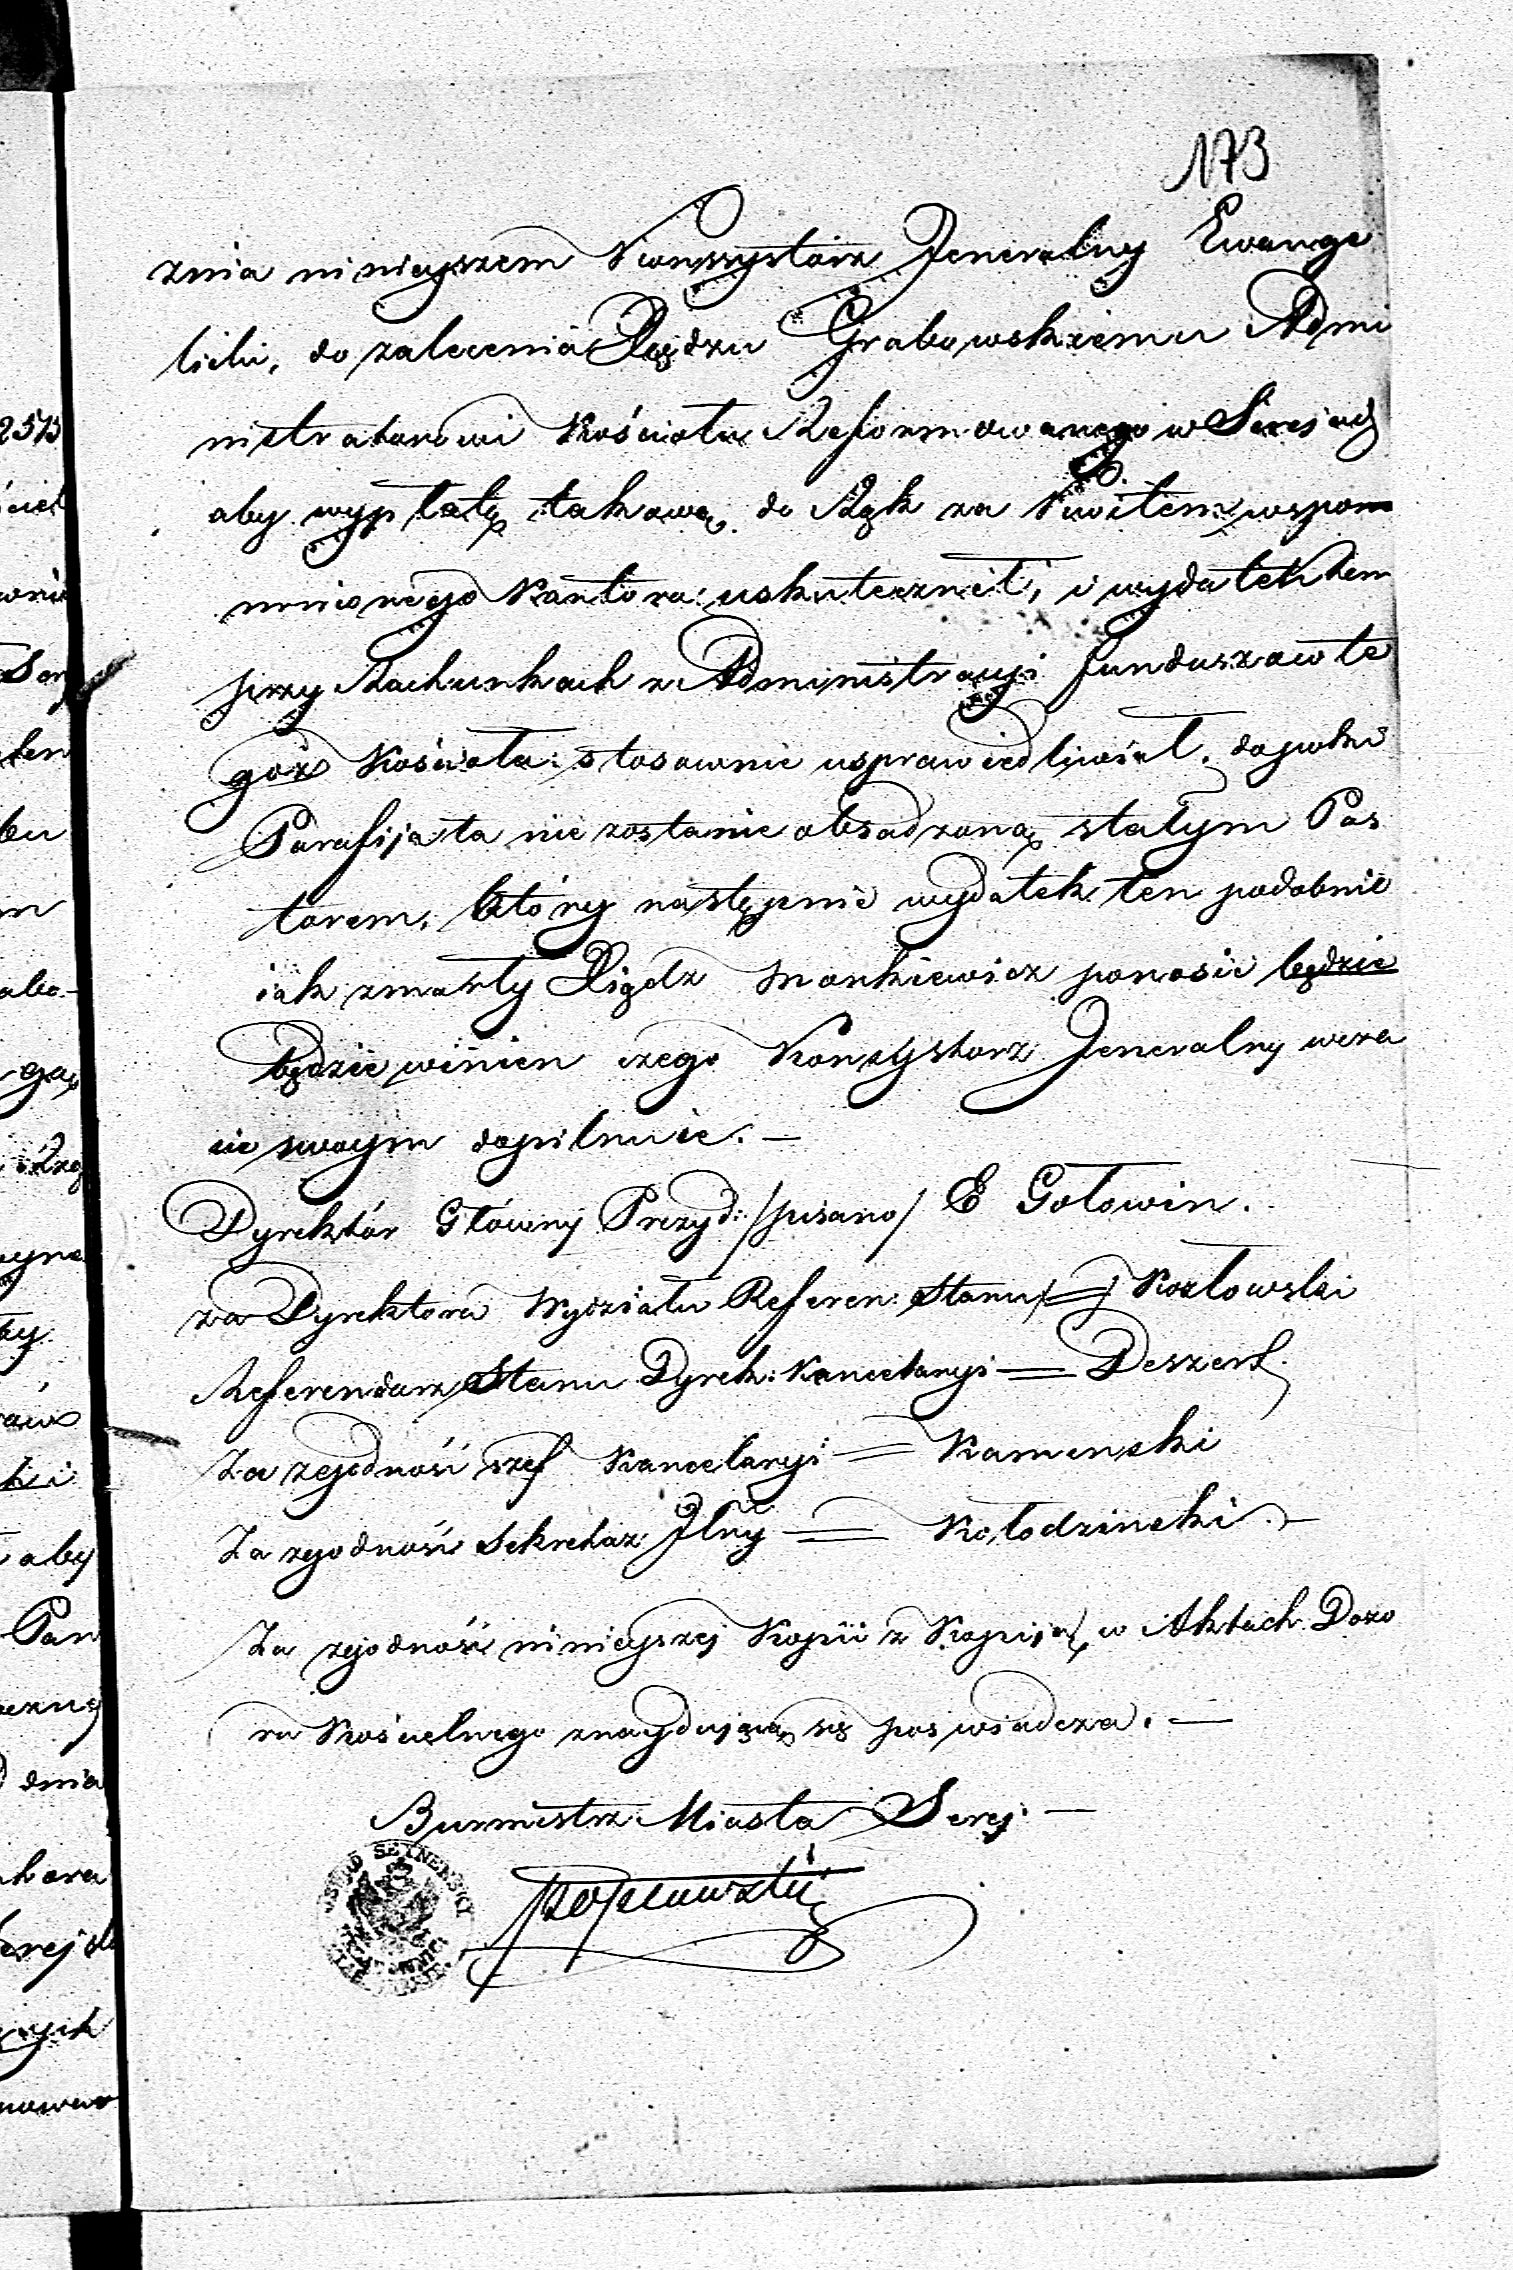 173
znia ninieyszem Konsystorz Jeneralny Ewange
licki, do zalecenia Xiędzu Grabowskiemu Admi
nistratorowi Kościoła Reformowanego w Serejach
aby wypłatę takową do Rąk za Kwitem wspom
nionego Kantora uskutecznił, i wydatek ten
przy Rachunkach z Administracyi funduszów te
goż Kościoła stosownie usprawiedliwiał, dopóki
Parafija ta nie zostanie obsadzoną stałym Pas
torem, który następnie wydatek ten podobnie
iak zmarły Xiądz Mankiewicz ponosić będzie
będzie winien czego Konsystorz Jeneralny wcza
sie swoym dopilnuie. —
Dyrektór Główny Prezyd: /pisano/ E Gołowin.
za Dyrektora Wydziału Referen: Stanu /=/ Kozłowski
Referendarz Stanu Dyrek: Kancelaryi = Deszert
Za zgodność szef Kancelaryi = Kamenski
Za zgodność Sekretarz Jlny = Kołodzinski. —
Za zgodność ninieyszej Kopii z Kopiją w Aktach Dozo
ru Kościelnego znaydującą się poswiadcza. —
Burmistrz Miasta Serej —